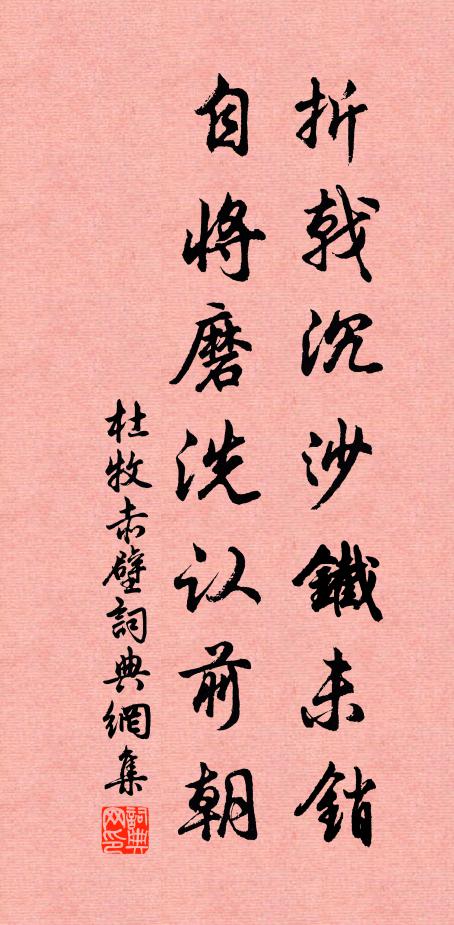 折戟沉沙鐵未銷
自将磨洗认前朝
杜牧赤壁詞典網集
詞典网印